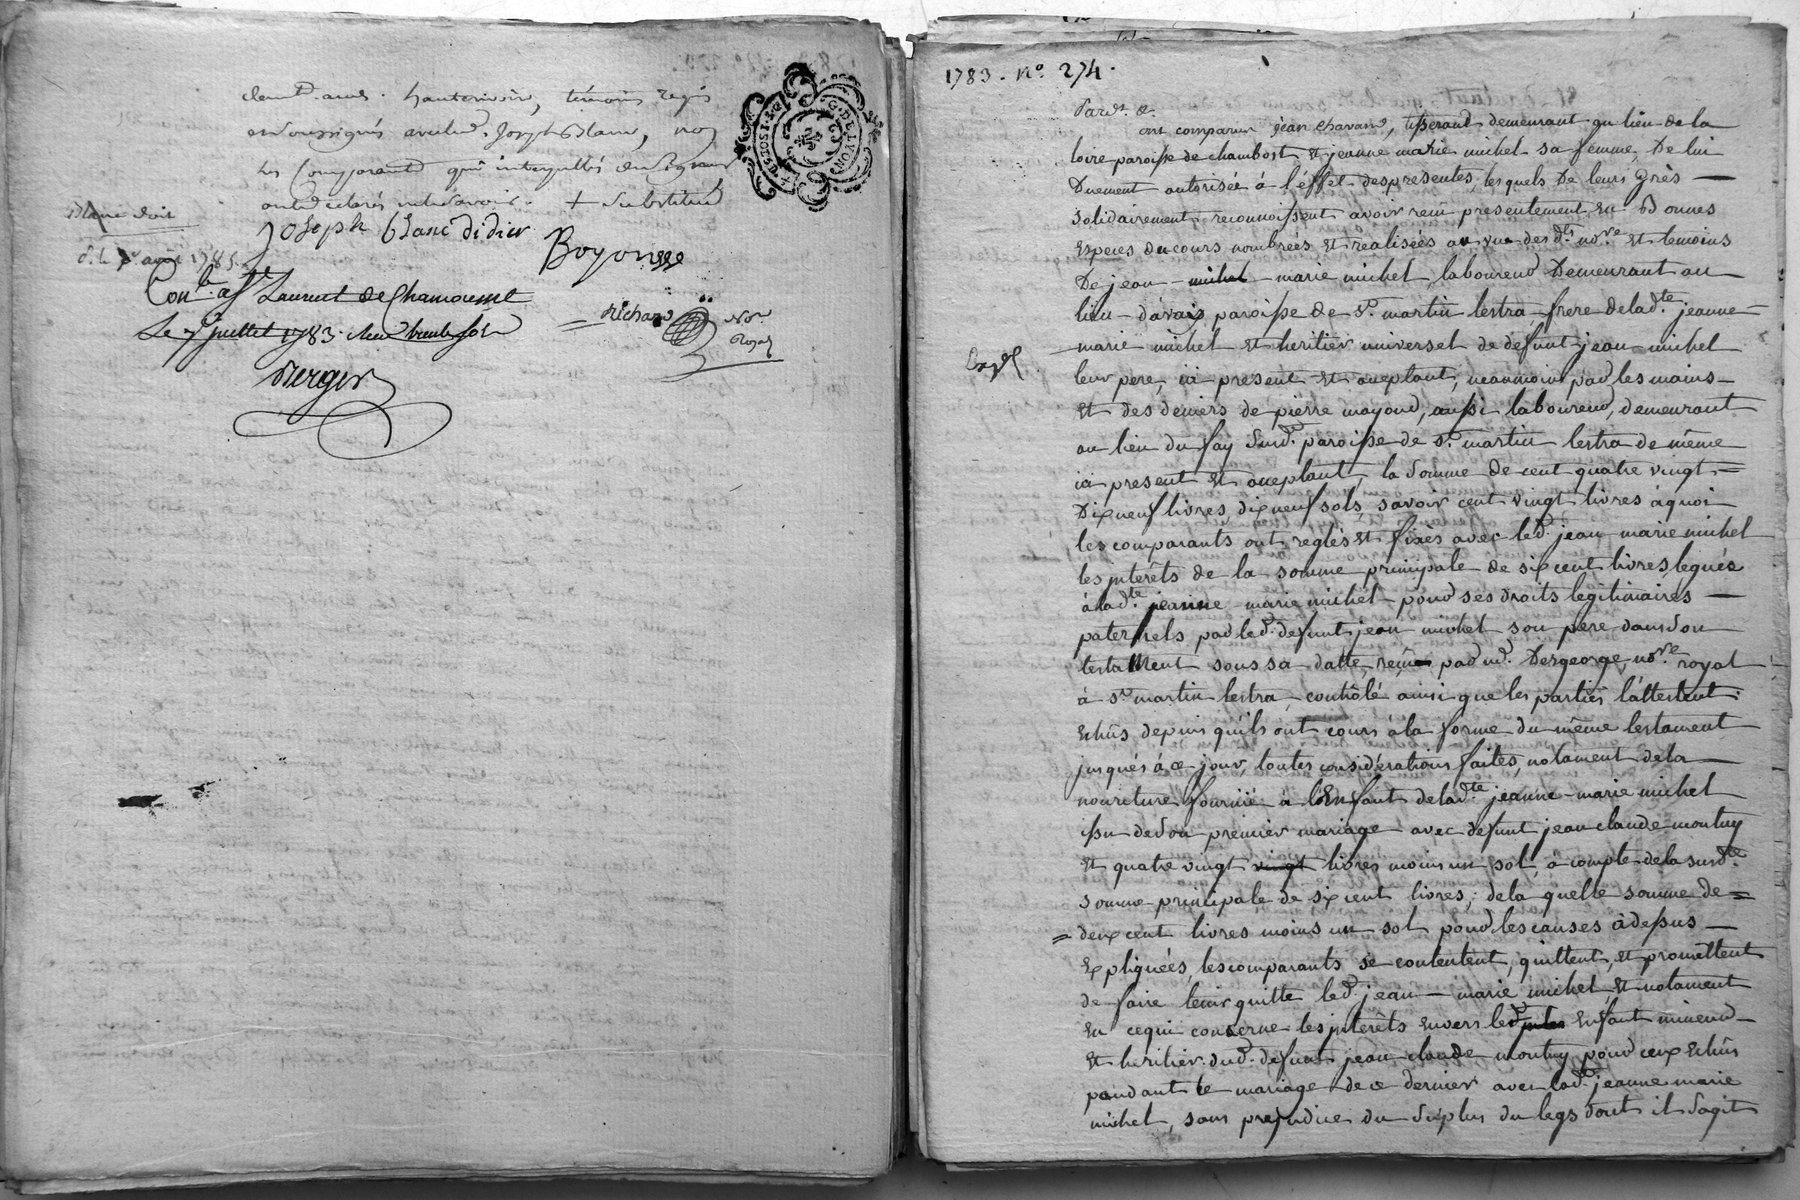 demt. aud. hauterivoire, témoins regis
et soussignés avec led. Joseph Blanc, non
les comparants qui interpellés de signer
ont déclarés ne le savoir. + substitud
Blanc doit
Joseph blanc didier
Boyonnee
d. le août 1785.
Con.le a St Laurent de Chamousset
Le 7 juillet 1783.
Richard Nore
Royal
Berger
GEN. DE LYON
1783. No. 274.
Pardt. &.
ont comparu jean chavand, tisserand demeurant au lieu de la
loire paroisse de chambost et jeanne marie michel sa femme, De lui
Duement autorisée à l'éffet des presentes, lesquels De leurs grès
solidairement reconnoissent avoir reçu presentement en Bonnes
especes du cours nombrées et réalisées au vu des dts. nore. et temoins
De jean michel marie michel, laboureur Demeurant au
lieu d'avais paroisse de st. martin lestra frere de ladte. jeanne
marie michel et heritier universel de défunt jean michel
leur pere, ici present et acceptant, neanmoins par les mains
et des deniers de pierre mayoud, aussi laboureur, demeurant
au lieu du fay susd. paroisse de st. martin lestra de même
ici present et acceptant, la somme de cent quatre vingt
Dix neuf livres dix neuf sols, savoir cent vingt livres à quoi
les comparants ont reglés et fixés avec led. jean marie michel
les jnterêts de la somme principale de six cent livres legués
à ladte. jeanne marie michel pour ses droits legitimaires
paternels par led. defunt jean michel son pere dans son
testament sous sa datte, reçu par me. Dergeorge nore. royal
à st. martin lestra, contrôlé ainsi que les parties l'attestent:
echûs depuis qu'ils ont cours à la forme du même testament
jusqués à ce jour, toutes considérations faites, notament de la
nouriture fournie à l'Enfant de ladte. jeanne marie michel
issu de son premier mariage avec defunt jean claude moutuy
et quatre vingt vingt livres moins un sol, à compte de la susdte.
somme principale de six cent livres; de la quelle somme de
deux cent livres moins un sol pour les causes à dessus
Expliquées, les comparants se contentent, quittent, et promettent
de faire tenir quitte led. jean marie michel, et notament
en ce qui concerne les jnterêts envers led. Enfant mineur
et heritier dud. defunt jean claude moutuy pour ceux echûs
pendant le mariage de ce dernier avec lad. jeanne marie
michel, sans prejudice du surplus du legs dont il s'agit